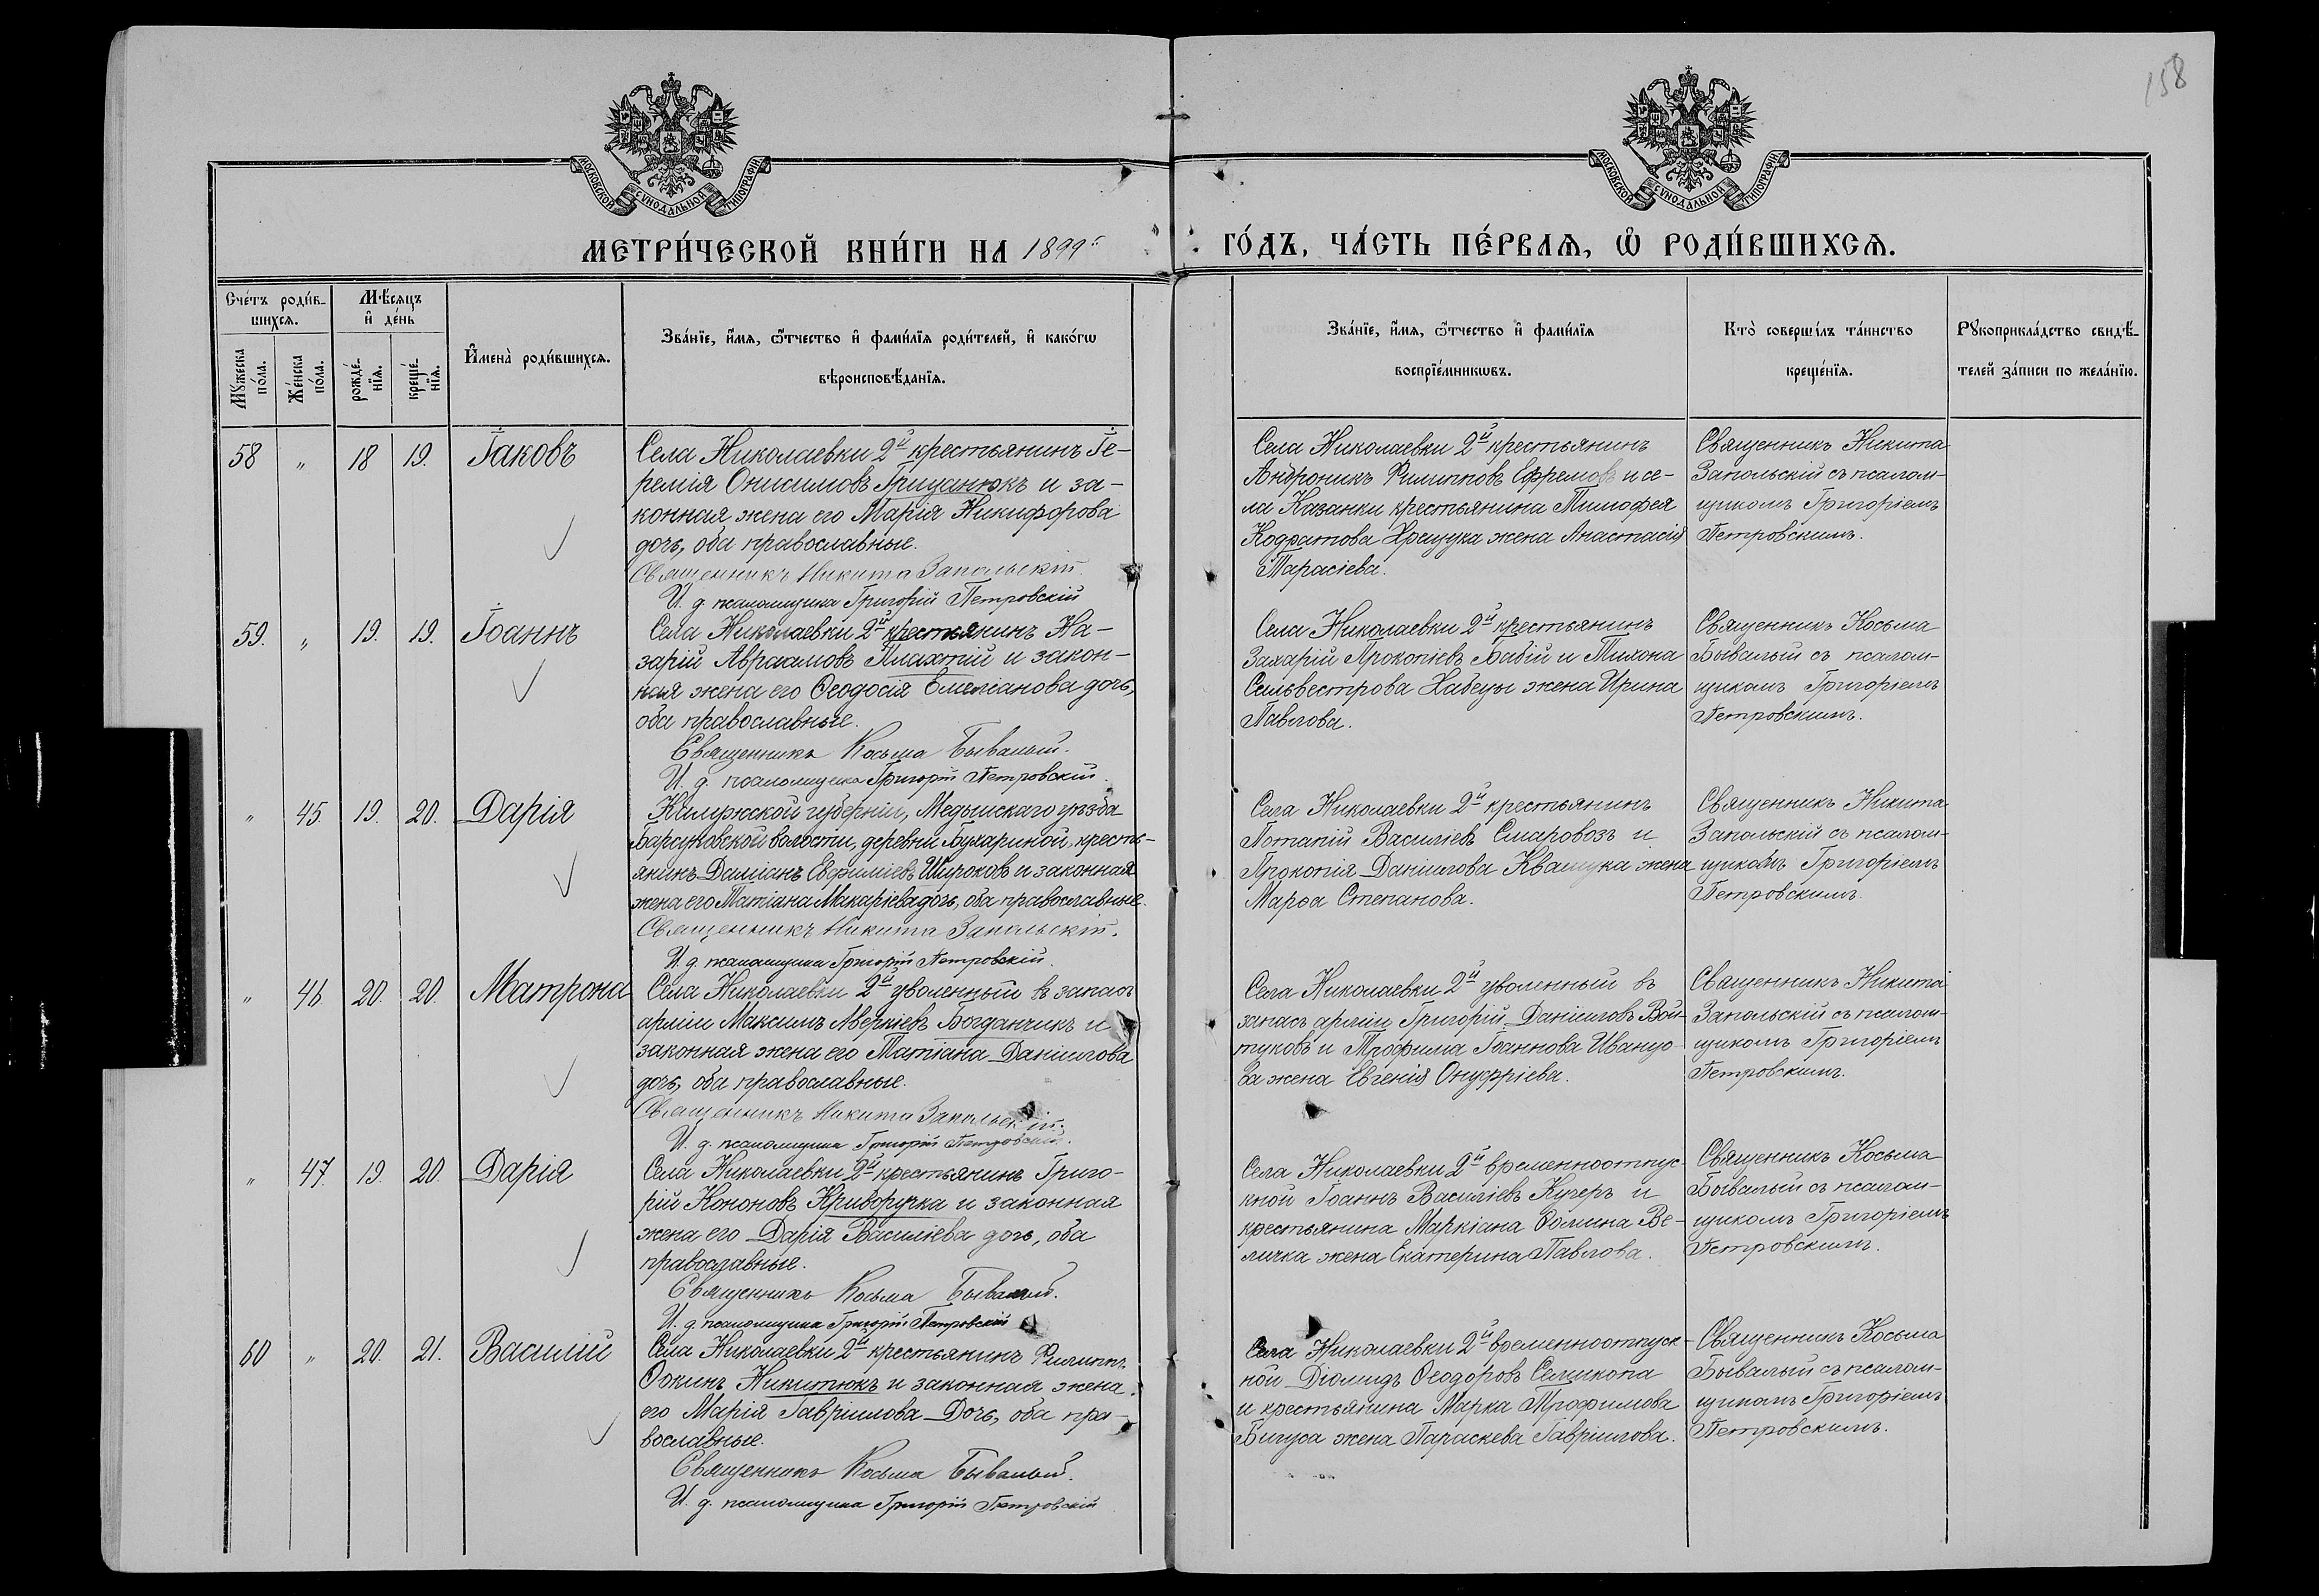 158
МОСКОВСКОЙ СѴНОДАЛЬНОЙ ТИПОГРАФІИ
МОСКОВСКОЙ СѴНОДАЛЬНОЙ ТИПОГРАФІИ
МЕТРИ́ЧЕСКОЙ КНИ́ГИ НА 1899й
ГО́ДЪ, ЧА́СТЬ ПЕ́РВАѦ, Ѽ РОДИ́ВШИХСѦ.
Сче́тъ роди́в-
шихсѧ.
Мꙋжеска по́ла.
Же́нска по́ла.
Мѣ́сѧцъ
и҆ де́нь
рожде́нїѧ.
креще́нїѧ.
И҆мена̀ роди́вшихсѧ.
Зва́нїе, и҆́мѧ, ѻ҆́тчество и҆ фами́лїѧ роди́телей, и҆ како́гѡ
вѣроисповѣ́данїѧ.
Зва́нїе, и҆́мѧ, ѻ҆́тчество и҆ фами́лїѧ
воспрїе́мникѡвъ.
Кто̀ соверши́лъ та́инство
креще́нїѧ.
Рꙋкоприкла́дство свидѣ́-
телей за́писи по жела́нїю.
58 " 18 19. Іаковъ
Села Николаевки 2й крестьянинъ Іе-
ремія Онисимовъ Грицанюкъ и за-
конная жена его Марія Никифорова
дочь, оба православные.
Священникъ Никита Запольскій
И. д. псаломщика Григорій Петровскій
Села Николаевки 2й крестьянинъ
Андроникъ Филипповъ Ефремовъ и се-
ла Казанки крестьянина Тимофея
Кодратова Хращука жена Анастасія
Тарасіева.
Священникъ Никита
Запольскій съ псалом-
щикомъ Григоріемъ
Петровскимъ.
59. " 19. 19. Іоаннъ
Села Николаевки 2й крестьянинъ На-
зарій Авраамовъ Плахтій и закон-
ная жена его Ѳеодосія Емеліанова дочь,
оба православные.
Священникъ Косьма Бывалый.
И. д. псаломщика Григорій Петровскій.
Села Николаевки 2й крестьянинъ
Захарій Прокопіевъ Бабій и Тихона
Сельвестрова Хабецы жена Ирина
Павлова.
Священникъ Косьма
Бывалый съ псалом-
щикомъ Григоріемъ
Петровскимъ.
" 45. 19. 20. Дарія
Калужской губерніи, Медынскаго уѣзда
Барсуковской волости, деревни Бухариной, кресть-
янинъ Даміанъ Евфиміевъ Широковъ и законная
жена его Татіана Макаріева дочь, оба православные.
Священникъ Никита Запольскій.
И. д. псаломщика Григорій Петровскій.
Села Николаевки 2й крестьянинъ
Потапій Василіевъ Смаровозъ и
Прокопія Даніилова Квашука жена
Марѳа Степанова.
Священникъ Никита
Запольскій съ псалом-
щикомъ Григоріемъ
Петровскимъ.
" 46. 20. 20. Матрона
Села Николаевки 2й уволенный въ запасъ
арміи Максимъ Аверкіевъ Богданчикъ и
законная жена его Татіана Даніилова
дочь, оба православные.
Священникъ Никита Запольскій.
И. д. псаломщика Григорій Петровскій.
Села Николаевки 2й уволенный въ
запасъ арміи Григорій Даніиловъ Вой-
туковъ и Трофима Іоаннова Ивануо-
ва жена Евгенія Онуфріева.
Священникъ Никита
Запольскій съ псалом-
щикомъ Григоріемъ
Петровскимъ.
" 47. 19. 20. Дарія
Села Николаевки 2й крестьянинъ Григо-
рій Кононовъ Криворучка и законная
жена его Дарія Василіева дочь, оба
православные.
Священникъ Косьма Бывалый.
И. д. псаломщика Григорій Петровскій
Села Николаевки 2й временноотпус-
кной Іоаннъ Василіевъ Кучеръ и
крестьянина Маркіана Ѳомина Ве-
личка жена Екатерина Павлова.
Священникъ Косьма
Бывалый съ псалом-
щикомъ Григоріемъ
Петровскимъ.
60 " 20. 21. Василій
Села Николаевки 2й крестьянинъ Филиппъ
Ѳокинъ Никитюкъ и законная жена
его Марія Гавріилова Дочь, оба пра-
вославные.
Священникъ Косьма Бывалый.
И. д. псаломщика Григорій Петровскій
Села Николаевки 2й временноотпуск-
ной Діомидъ Ѳеодоровъ Семикопа
и крестьянина Марка Трофимова
Бигуса жена Параскева Гавріилова.
Священникъ Косьма
Бывалый съ псалом-
щикомъ Григоріемъ
Петровскимъ.